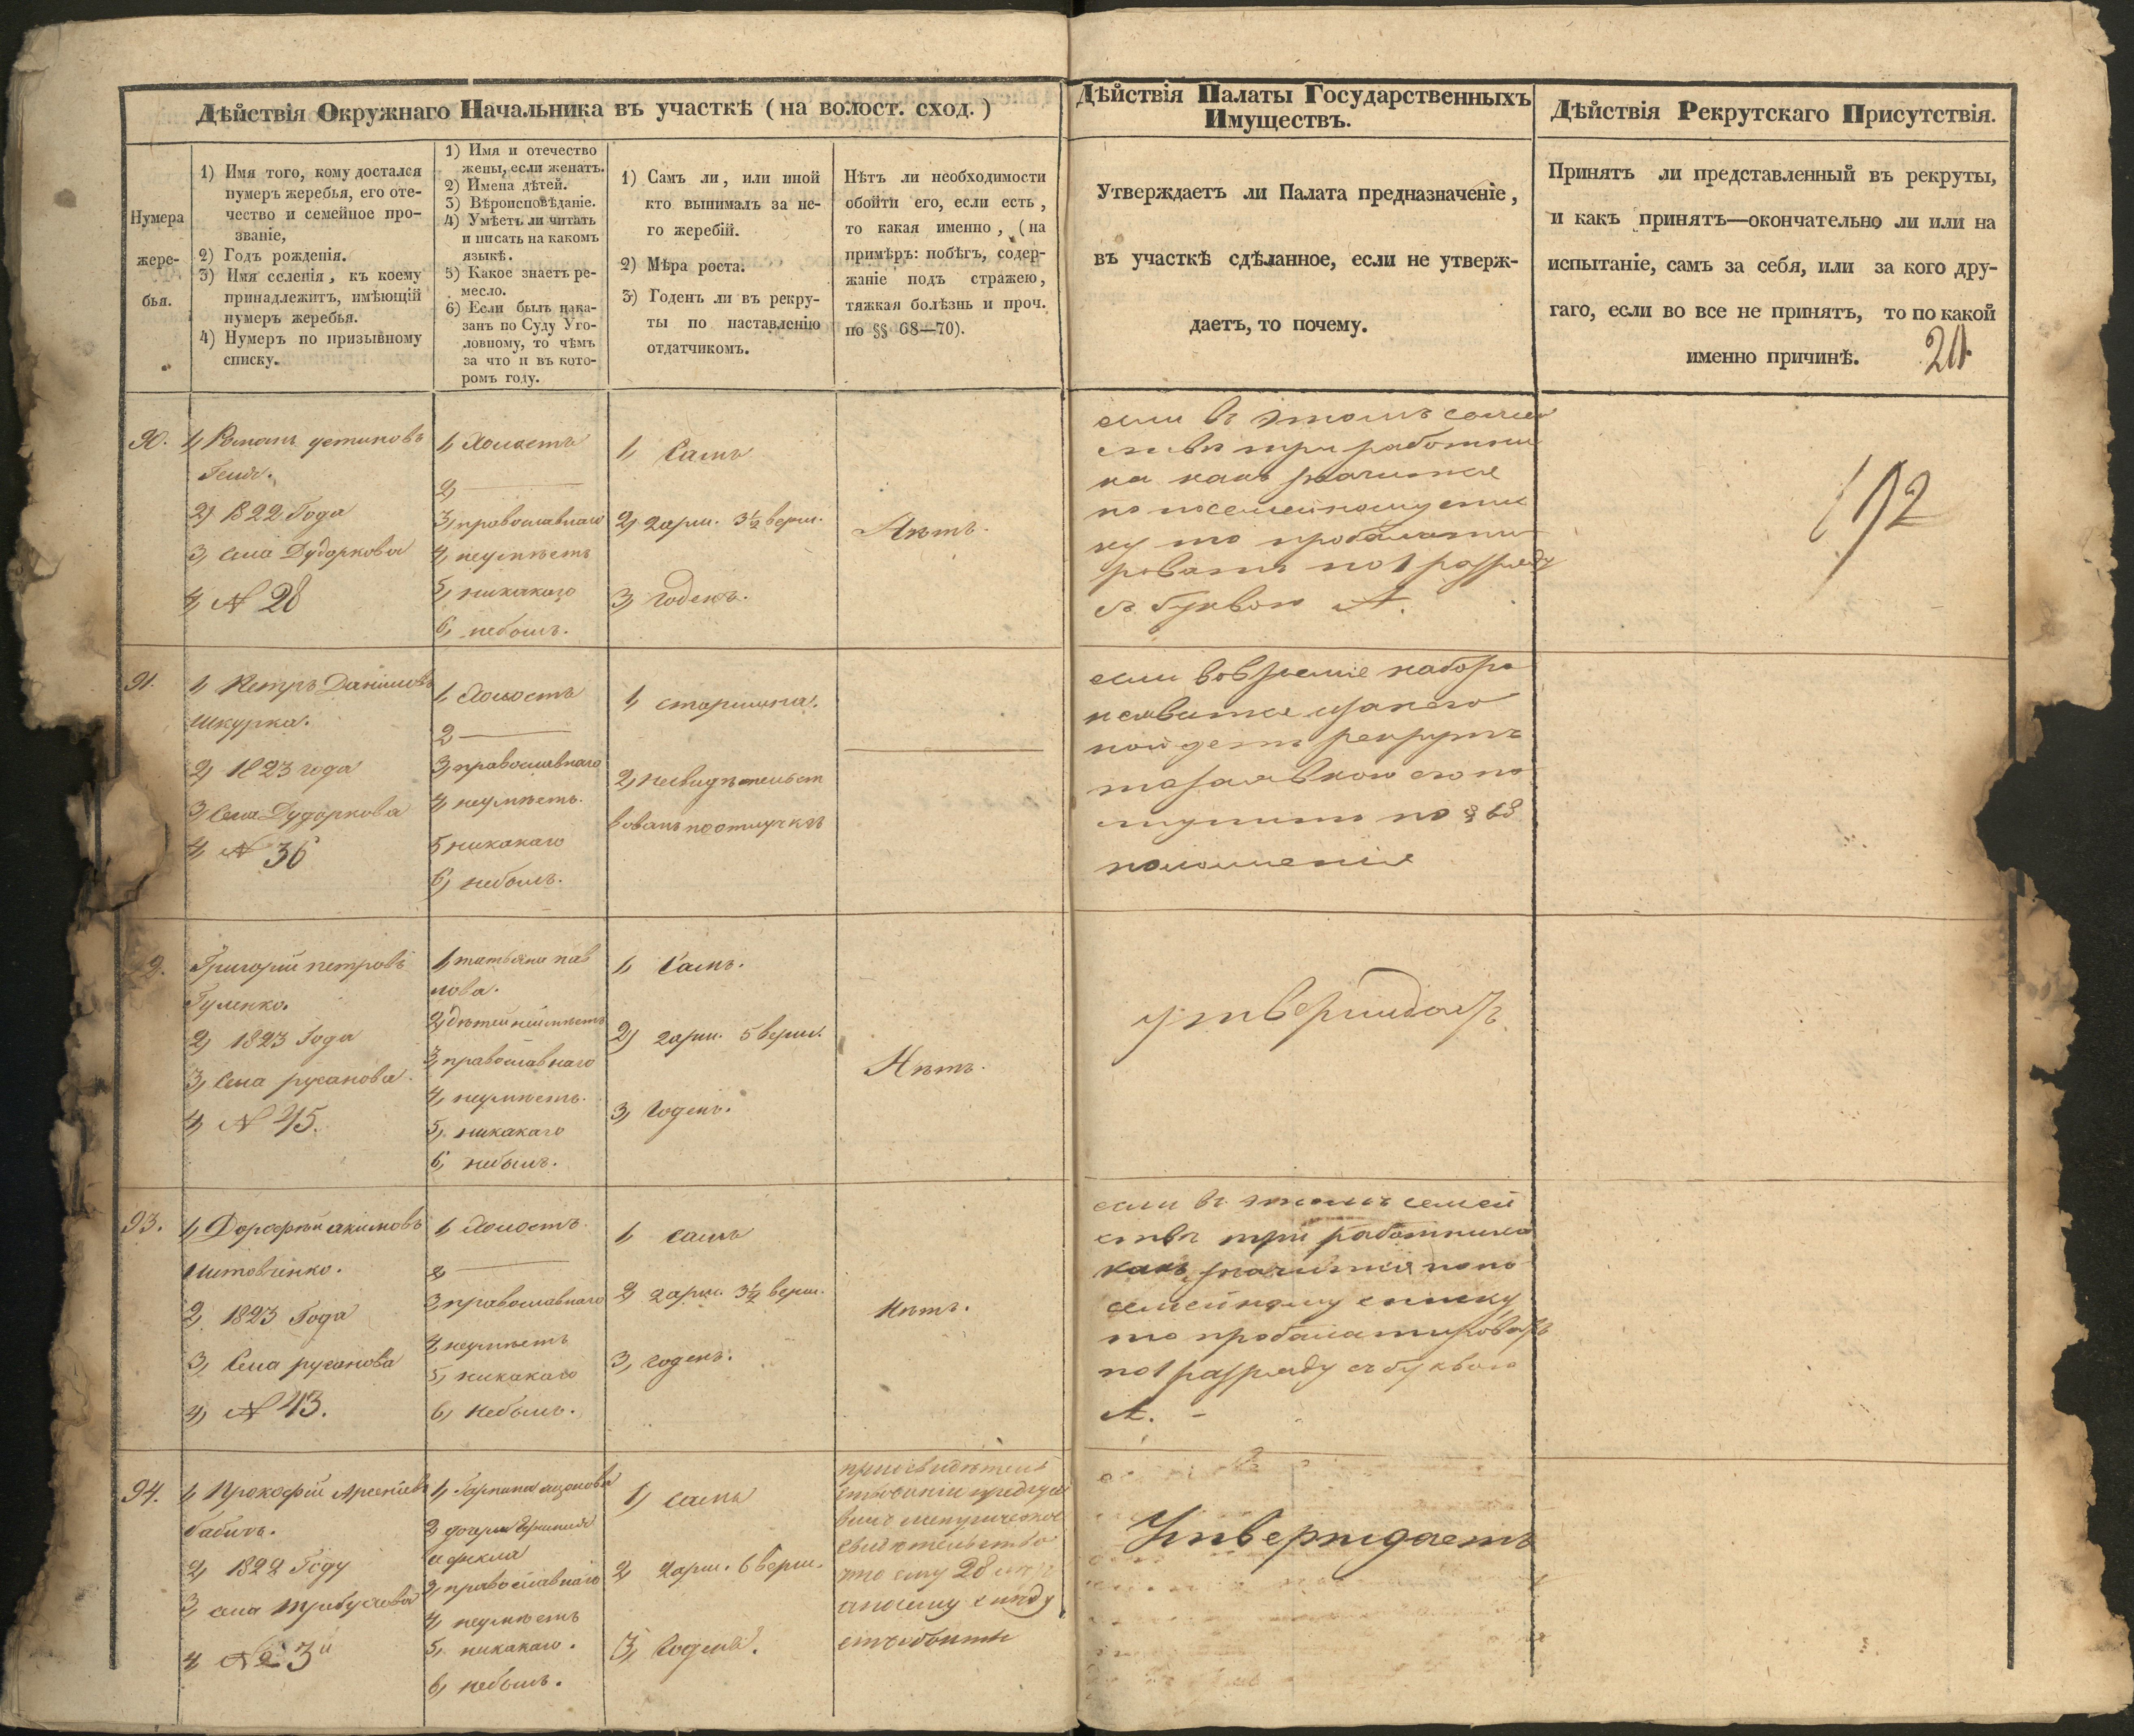 Дѣйствія Окружнаго Начальника въ участкѣ (на волост. сход.)
Нумера
жере-
бья.
1) Имя того, кому достался
нумеръ жеребья, его оте-
чество и семейное про-
званіе,
2) Годъ рожденія.
3) Имя селенія, къ коему
принадлежитъ, имѣющій
нумеръ жеребья.
4) Нумеръ по призывному
списку.
1) Имя и отечество
жены, если женатъ.
2) Имена дѣтей.
3) Вѣроисповѣданіе.
4) Умѣетъ ли читать
и писать на какомъ
языкѣ.
5) Какое знаетъ ре-
месло.
6) Если былъ нака-
занъ по Суду Уго-
ловному, то чѣмъ
за что и въ кото-
ромъ году.
1) Самъ ли, или иной
кто вынималъ за не-
го жеребій.
2) Мѣра роста.
3) Годенъ ли въ рекру-
ты по наставленію
отдатчикомъ.
Нѣтъ ли необходимости
обойти его, если есть,
то какая именно, (на
примѣръ: побѣгъ, содер-
жаніе подъ стражею,
тяжкая болѣзнь и проч.
по §§ 68—70).
Дѣйствія Палаты Государственныхъ
Имуществъ.
Утверждаетъ ли Палата предназначеніе,
въ участкѣ сдѣланное, если не утверж-
даетъ, то почему.
Дѣйствія Рекрутскаго Присутствія.
Принятъ ли представленный въ рекруты,
и какъ принятъ—окончательно ли или на
испытаніе, самъ за себя, или за кого дру-
гаго, если во все не принятъ, то по какой
именно причинѣ.
90.
1, Романъ устиновъ
2) 1822 Года
3, села Дударкова
4, N 28
1, Холостъ
2,
3, православнаго
4, неумѣетъ
5, никакаго
6, небылъ.
1, Самъ
2, 2 арш. 3½ верш.
3, Годенъ.
Нѣтъ.
если въ этомъ семей
ствѣ три работни
ка какъ значится
по посемейному спис
ку то пробалоти
ровать по 1 разряду
съ буквою А.
91.
1, Петръ Даниловъ
Шкурка.
2, 1823 года
3, Села Дударкова
4, N 36
1, Холостъ
2
3, православнаго
4, неумѣетъ.
5 никакаго
6, небылъ.
1, старшина.
2, несвидѣтельст
вованъ по отлучкѣ
если вовремя набора
неявится и за него
пойдетъ рекрутъ
по § 68
положенія
9.
Григорій петровъ
Гуленко.
2, 1823 Года
3, Села русанова.
4, N 45.
1, татьяна пав
лова.
2, дѣтей неимѣетъ
3, православнаго
4, неумѣетъ.
5, никакаго
6, небылъ.
1, Самъ.
2, 2 арш. 5 верш.
3, Годенъ.
Нѣтъ.
утверждаетъ
93.
1, Дорофѣй акимовъ
Литовченко.
2, 1823 Года
3, Села русанова
4, N 43.
1, Холостъ
2
3, православнаго
4, неумѣетъ
5, никакаго
6, небылъ.
1, самъ
2, 2 арш. 3½ верш.
3, годенъ.
нѣтъ.
если въ этомъ семей
ствѣ три работника
какъ значится по по
семейному списку
то пробалатировать
по 1 разряду съ буквою
А.
94.
1, Прокофій Арсеніевъ
бабичъ.
2, 1822 Году
3, села
4, № 3й
3, православнаго
4, неумѣетъ
5, никакаго.
6, небылъ.
1, самъ
2, 2 арш. 6 верш.
3, Годенъ.
при свидѣтель
ствованіи
свидѣтельство
что ему 28
Утверждаетъ